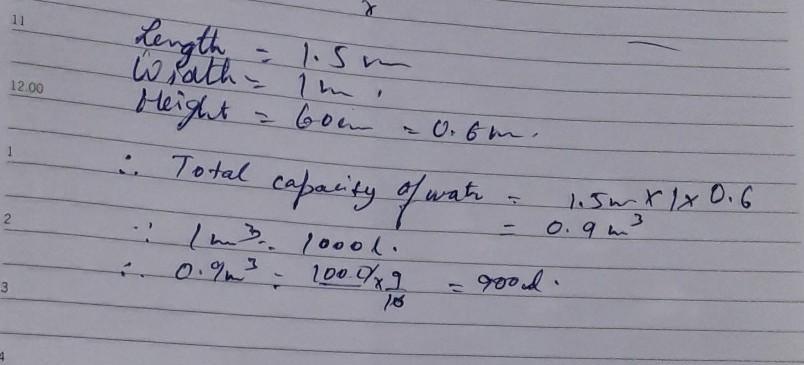 11
Length = 1.5 m
Width = 1m.
12.00
Height = 60cm = 0.6m.
1
∴ Total capacity of wate = 1.5m x 1 x 0.6
= 0.9 m³
2
∵ 1m³ = 1000l.
∴ 0.9m³ = 1000 x 9/10 = 900l.
3
4